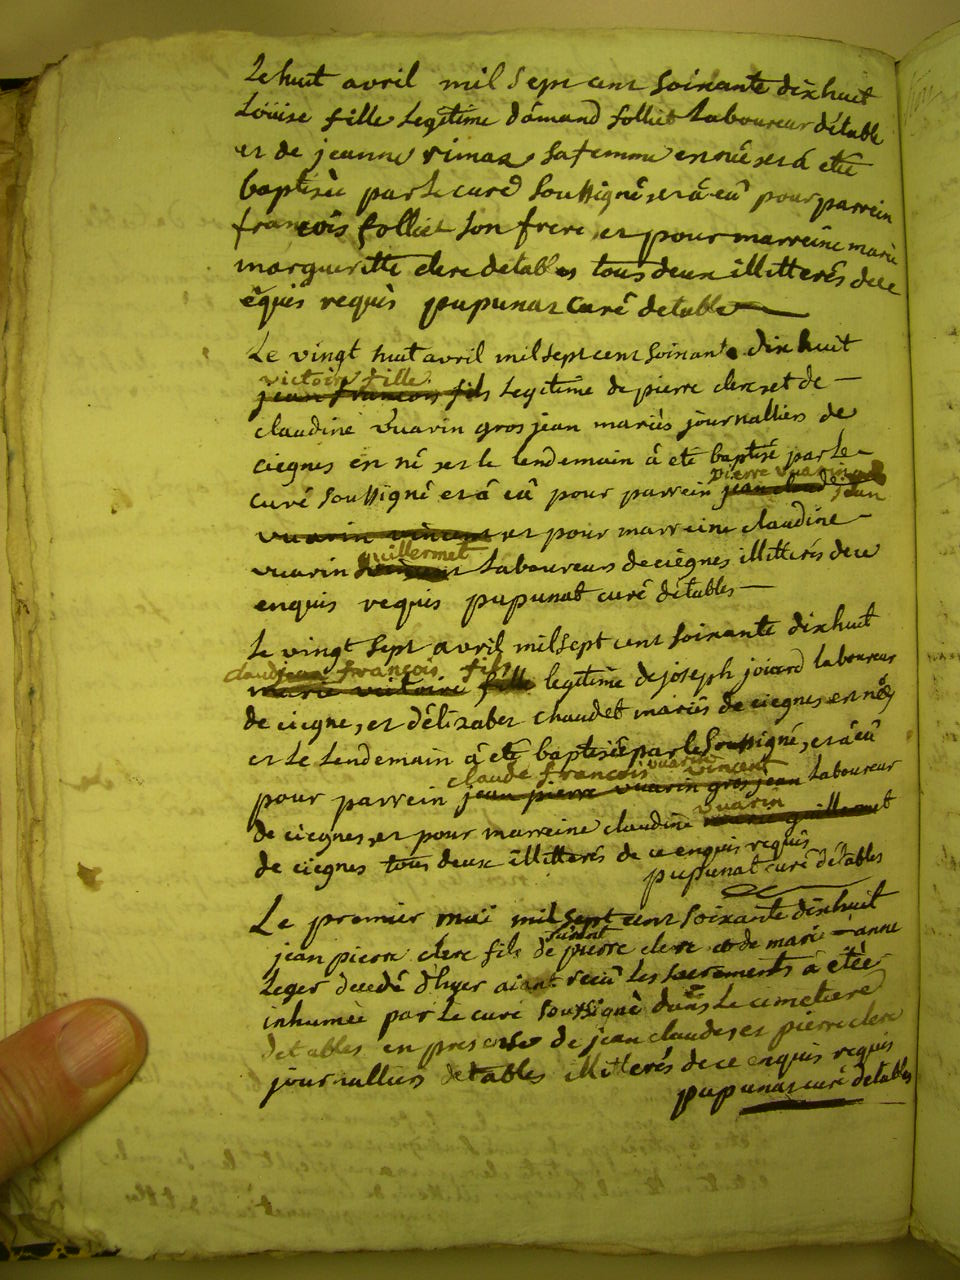 Le huit avril mil sept cent soixante dix huit
Louise fille Legitime d'amand folliet Laboureur d'étable
et de jeanne sa femme en née et a été
baptisèe par le curé soussigné et a eû pour parrein
françois folliet son frere et pour marreine marie
margueritte clerc detables tous deux illitterés de ce
êquis requis pupunat curé detable
Le vingt huit avril mil sept cent soixante dix huit
victoire fille
jean francois fils Legitime de pierre clerc et de
claudine vuarin gros jean mariés journalliers de
ciegnes en né et le lendemain â eté baptisé par Le
pierre vuarin
curé soussigné et â eû pour parrein jean claude jean
vuarin vincent et pour marreine claudine
guillermet
vuarin Laboureurs de ciègnes illitterés de ce
enquis requis pupunat curé détables
Le vingt sept avril mil sept cent soixante dix huit
claude jean françois fils
marie victoire fille legitime de joseph joicerd laboureur
de ciegne, et d'élizabet chaudet mariés de ciegnes en né
et Le Lendemain â eté baptisée par le soussigné, et â eû
claude françois vuarin vincent
pour parrein jean pierre vuarin gros jean Laboureur
vuarin
de ciegnes, et pour marreine claudine marie guillermet
de ciegnes tous deux illitterés de ce enquis requis
pupunat curé détables
Le premier mai mil sept cent soixante dix huit
jean pierre clerc fils de pierre clerc et de marie anne
Leger decedé d'hyer aiant recû les sacrements â etèe
inhumèe par Le curé soussigné dans Le cimetiere
detables en presence de jean claude et pierre clerc
journalliers detables illitterés de ce enquis requis
pupunat curé detables